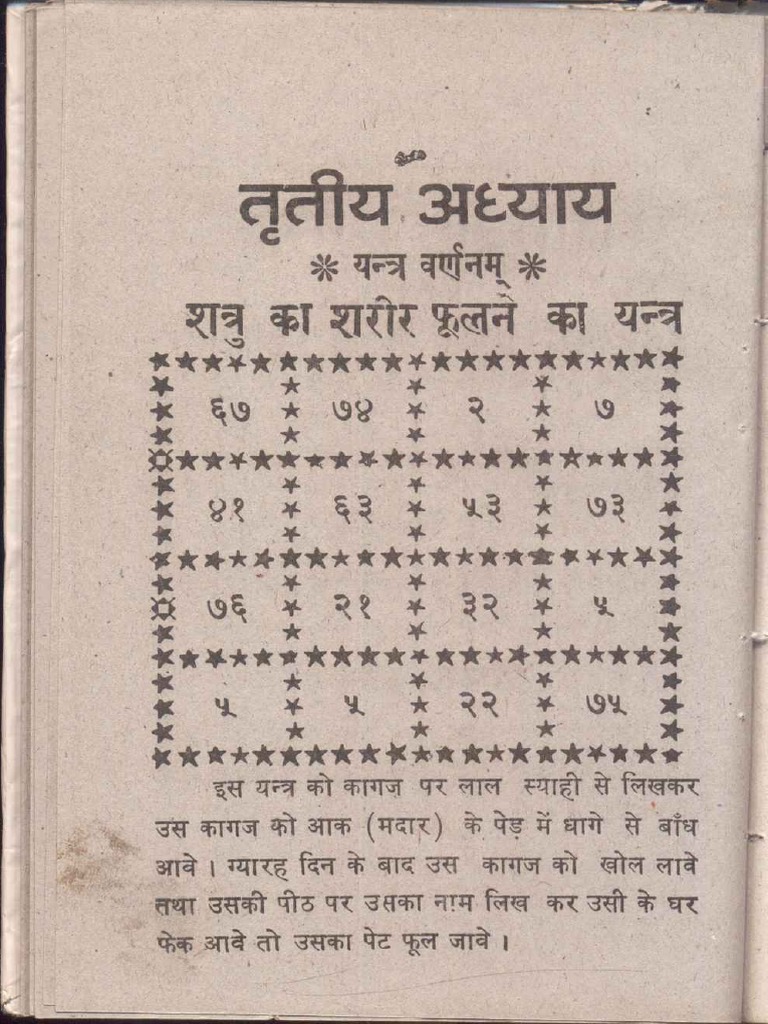 तृतीय अध्याय
यन्त्र वर्णनम्
शत्रु का शरीर फूलने का यन्त्र
६७ ७४ २ ७
४१ ६३ ५३ ७३
७६ २१ ३२ ५
५ ५ २२ ७५
इस यन्त्र को कागज पर लाल स्याही से लिखकर
उस कागज को आक (मदार) के पेड़ में धागे से बाँध
आवे । ग्यारह दिन के बाद उस कागज को खोल लावे
तथा उसकी पीठ पर उसका नाम लिख कर उसी के घर
फेक आवे तो उसका पेट फूल जावे ।